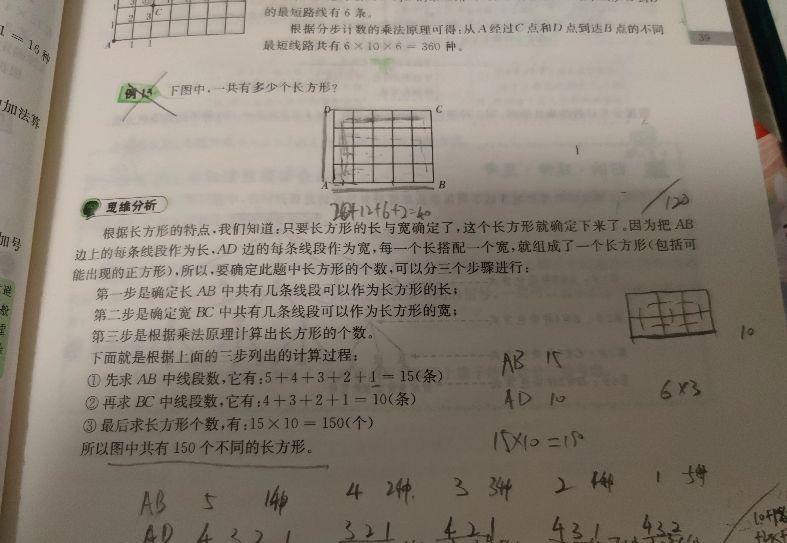 的最短路线有6条。
根据分步计数的乘法原理可得:从A经过C点和D点到达B点的不同
最短线路共有6×10×6=360种。
39
1=16种
加法算
例13 下图中,一共有多少个长方形?
D C
A B
思维分析
+12+6+2=40
120
根据长方形的特点,我们知道:只要长方形的长与宽确定了,这个长方形就确定下来了。因为把AB
边上的每条线段作为长,AD边的每条线段作为宽,每一个长搭配一个宽,就组成了一个长方形(包括可
能出现的正方形),所以,要确定此题中长方形的个数,可以分三个步骤进行:
第一步是确定长AB中共有几条线段可以作为长方形的长;
第二步是确定宽BC中共有几条线段可以作为长方形的宽;
第三步是根据乘法原理计算出长方形的个数。
下面就是根据上面的三步列出的计算过程:
①先求AB中线段数,它有:5+4+3+2+1=15(条)
②再求BC中线段数,它有:4+3+2+1=10(条)
③最后求长方形个数,有:15×10=150(个)
所以图中共有150个不同的长方形。
10
AB 15
AD 10
6×3
15×10=150
AB 5 1种 4 2种 3 3种 2 4种 1 5种
AD 4 3 2 1 3 2 1 4 2 1 4 3 1 4 3 2